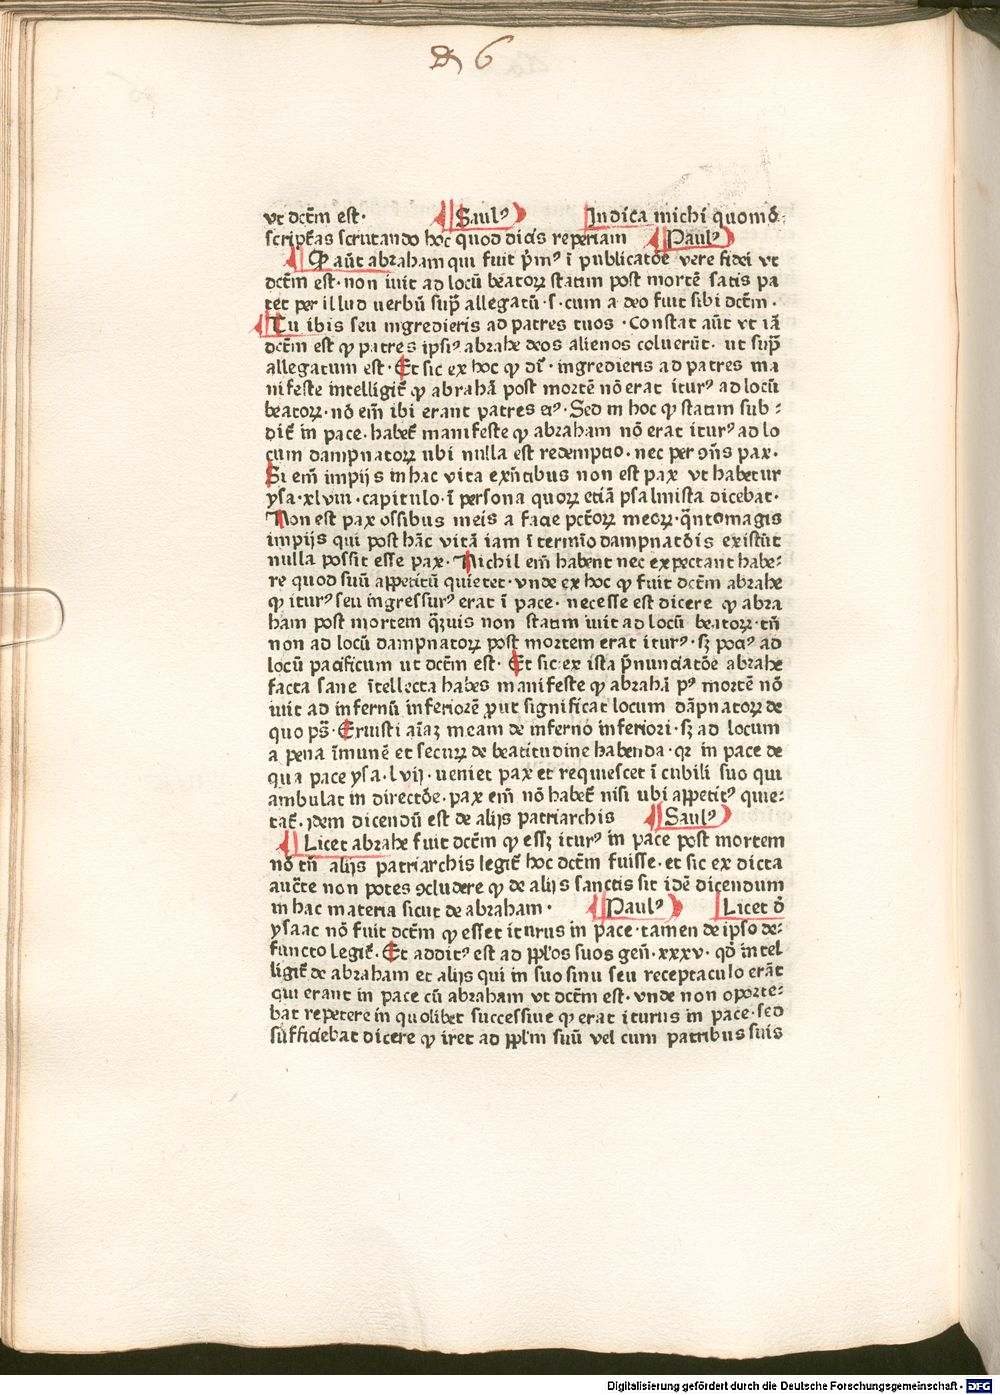 D 6
vt dctm̄ est· Saulꝰ Indica michi quomō
script̄as scrutando hoc quod dicis reperiam Paulꝰ
Ꝙ aūt abraham qui fuit p̄mꝰ ī publicatōe vere fidei vt
dctm̄ est· non iuit ad locū beatoꝝ statim post mortē satis pa
tet per illud uerbū sup̄ allegatū ·s· cum a deo fuit sibi dctm̄·
Tu ibis seu ingredieris ad patres tuos · Constat aūt vt iā
dctm̄ est ꝙ patres ipsiꝰ abrahe deos alienos coluerūt· ut sup̄
allegatum est· Et sic ex hoc ꝙ dr̄· ingredieris ad patres ma
nifeste intelligit̄ ꝙ abrahā post mortē nō erat iturꝰ ad locū
beatoꝝ· nō em̄ ibi erant patres eiꝰ· Sed in hoc ꝙ statim sub-
dit̄ in pace· habet̄ manifeste ꝙ abraham nō erat iturꝰ ad lo
cum dampnatoꝝ ubi nulla est redemptio· nec per ꝯn̄s pax·
Si em̄ impijs in hac vita exn̄tibus non est pax vt habetur
ysa·xlviii·capitulo·ī persona quoꝝ etiā psalmista dicebat·
Non est pax ossibus meis a facie pctōꝝ meoꝝ·q̄ntomagis
impijs qui post hāc vitā iam ī termīo dampnatōis existūt
nulla possit esse pax· Nichil em̄ habent nec expectant habe-
re quod suū appetitū quietet· vnde ex hoc ꝙ fuit dctm̄ abrahe
ꝙ iturꝰ seu ingressurꝰ erat ī pace· necesse est dicere ꝙ abra
ham post mortem q̄ꝫuis non statim iuit ad locū beatoꝝ· tn̄
non ad locū dampnatoꝝ post mortem erat iturꝰ· sꝫ pociꝰ ad
locū pacificum ut dctm̄ est· Et sic ex ista p̄nunciatōe abrahe
facta sane ītellecta habes manifeste ꝙ abrahā pꝰ mortē nō
iuit ad infernū inferiorē ꝓut significat locum dāpnatoꝝ de
quo ps̄· Eruisti aīaꝫ meam de inferno inferiori· sꝫ ad locum
a pena īmunē et securꝝ de beatitudine habenda· qꝛ in pace de
qua pace ysa·lvij· ueniet pax et requiescet ī cubili suo qui
ambulat in directōe· pax em̄ nō habet̄ nisi ubi appetitꝰ quie-
tat̄· idem dicendū est de alijs patriarchis Saulꝰ
Licet abrahe fuit dctm̄ ꝙ essꝫ iturꝰ in pace post mortem
nō tn̄ alijs patriarchis legit̄ hoc dctm̄ fuisse· et sic ex dicta
auct̄e non potes ꝯcludere ꝙ de alijs sanctis sit idē dicendum
in hac materia sicut de abraham· Paulꝰ Licet ō
ysaac nō fuit dctm̄ ꝙ esset iturus in pace· tamen de ipso de-
functo legit̄· Et additꝰ est ad ppl̄os suos gen̄·xxxv· qd̄ intel
ligit̄ de abraham et alijs qui in suo sinu seu receptaculo erāt
qui erant in pace cū abraham vt dctm̄ est· vnde non oporte-
bat repetere in quolibet successiue ꝙ erat iturus in pace· sed
sufficiebat dicere ꝙ iret ad ppl̄m suū vel cum patribus suis
Digitalisierung gefördert durch die Deutsche Forschungsgemeinschaft - DFG